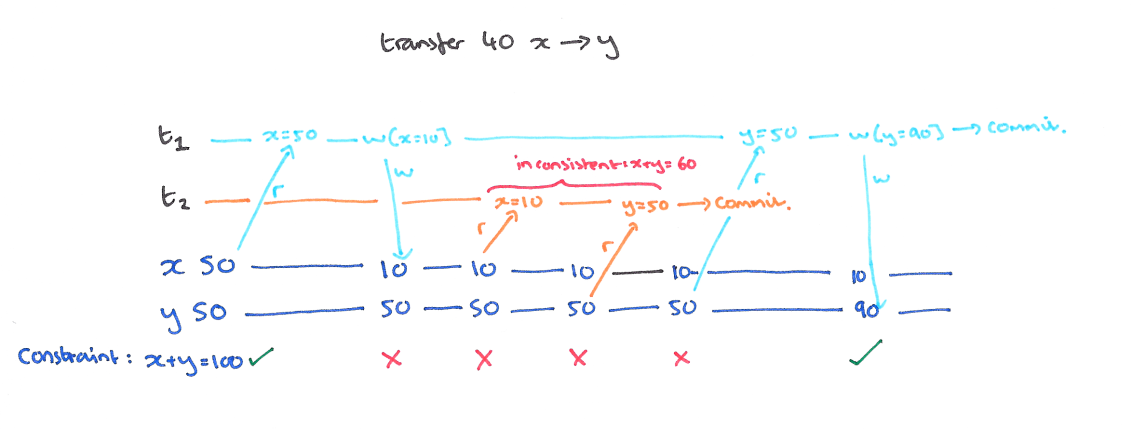 transfer 40 x → y
t1 — x=50 — w(x=10] — y=50 — w(y=90] → commit.
r w r w
inconsistent: x+y=60
t2 — x=10 — y=50 → commit.
r r
x 50 — 10 — 10 — 10 — 10 — 10 —
y 50 — 50 — 50 — 50 — 50 — 90 —
Constraint: x+y=100 ✓ × × × × ✓